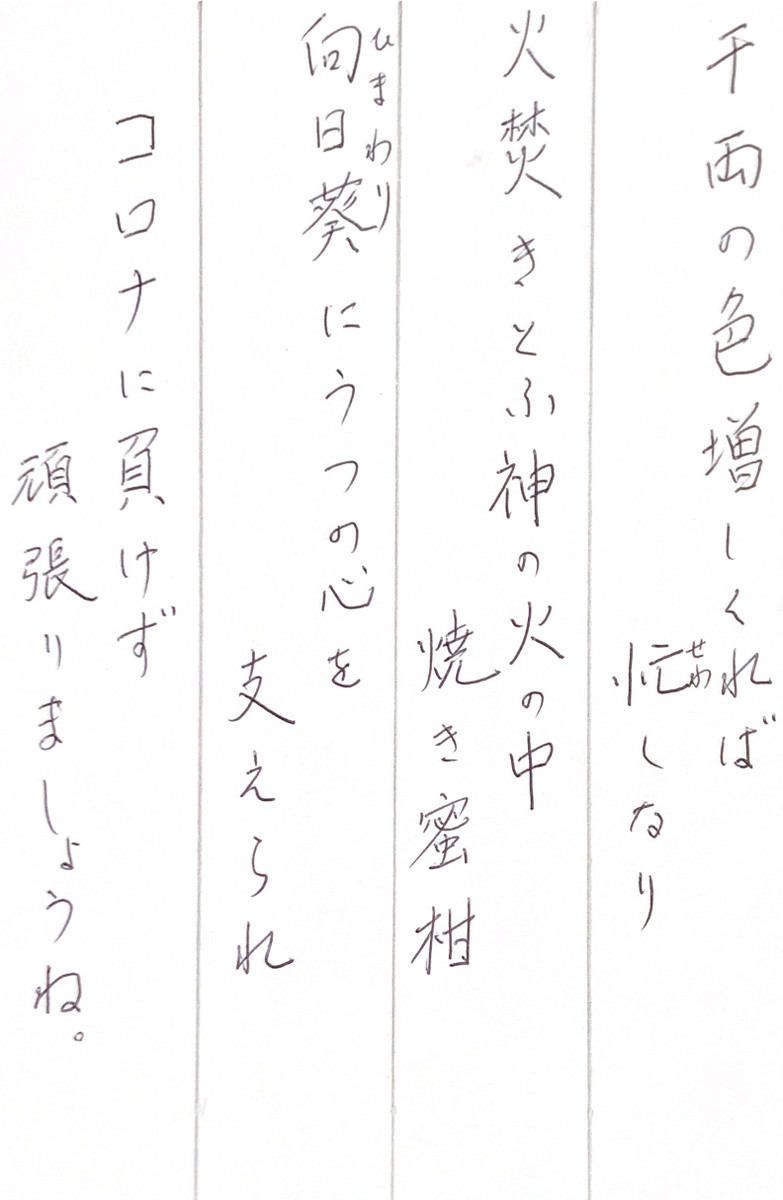 千両の色増しくれば
忙しなり
せわ
火焚きとふ神の火の中
焼き蜜柑
向日葵にうつの心を
ひまわり
支えられ
コロナに負けず
頑張りましょうね。